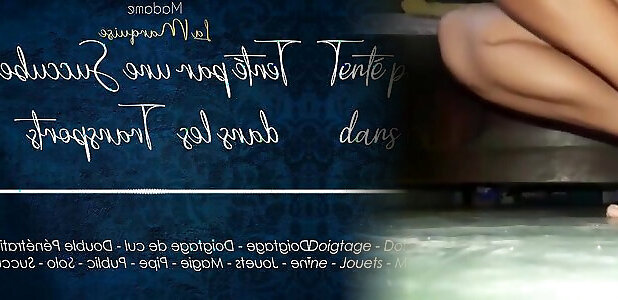 Madame
La Marquise
Tenté par une Succube Tenté p
dans les Transports dans
Doigtage - Doigtage de cul - Double Pénétrati Doigtage - Do
Jouets - Magie - Pipe - Public - Solo - Succu ne - Jouets - M